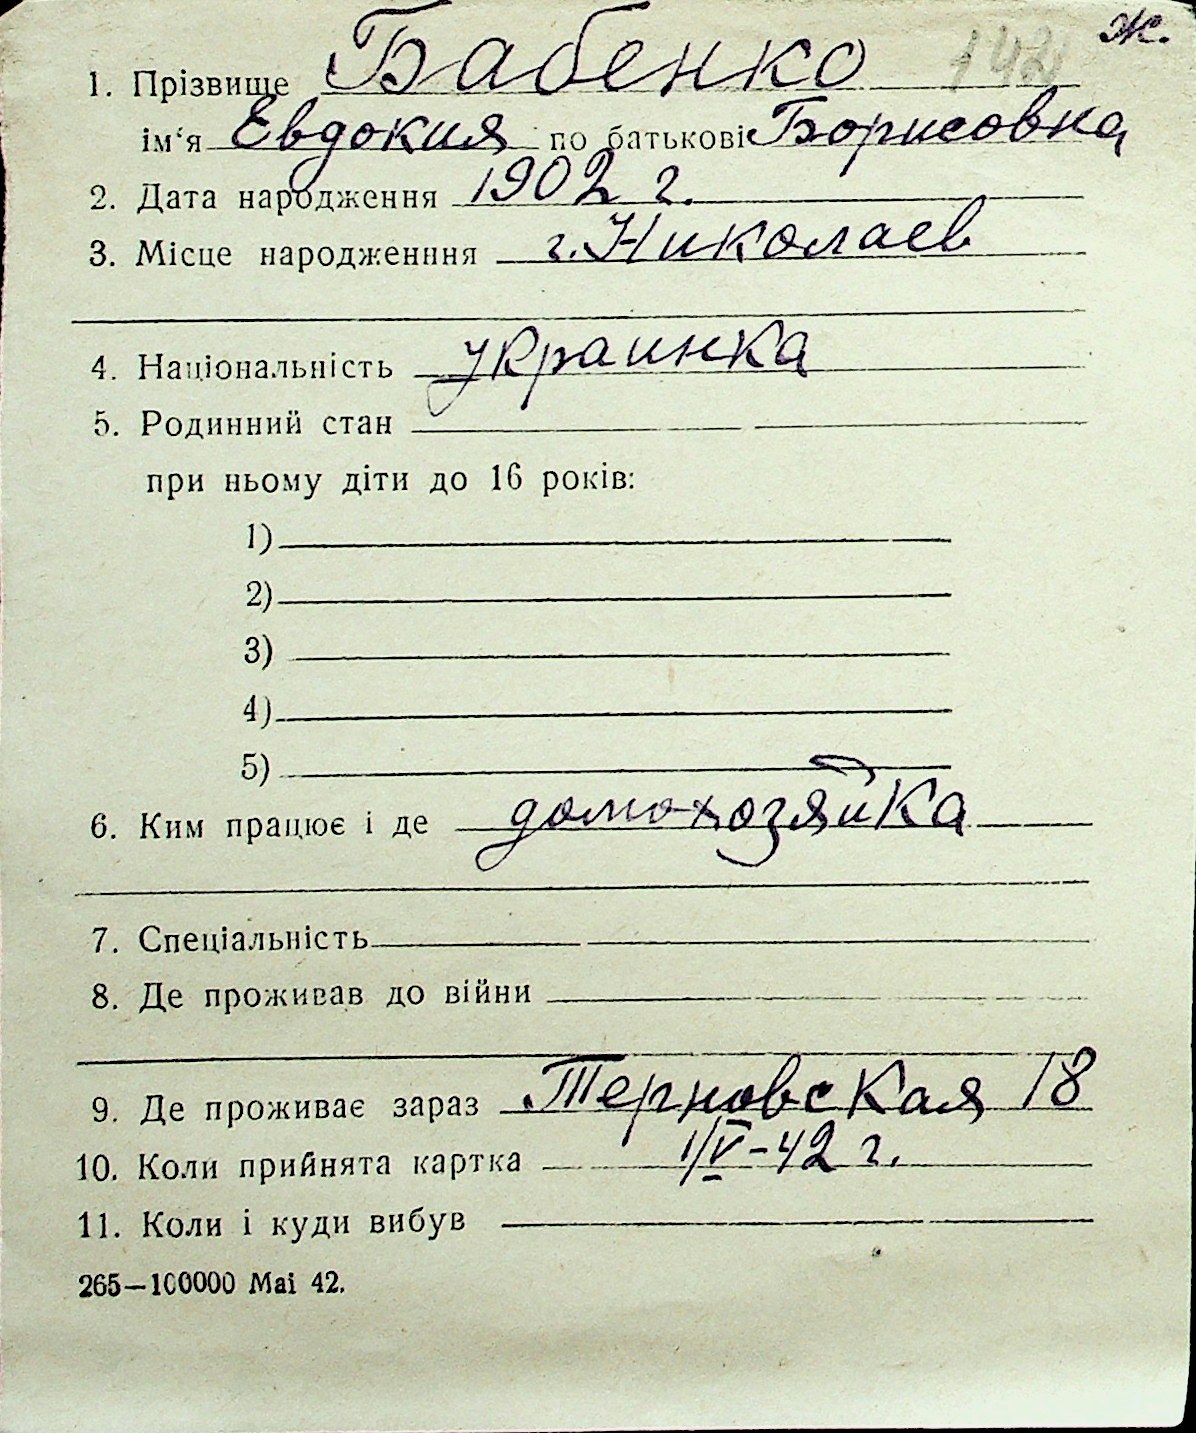 ж.
1. Прізвище Бабенко 142
ім‘я Евдокия по батькові Борисовна
2. Дата народження 1902 г.
3. Місце народженння г. Николаев
4. Національність украинка
5. Родинний стан
при ньому діти до 16 років:
1)
2)
3)
4)
5)
6. Ким працює і де домохозяйка
7. Спеціальність
8. Де проживав до війни
9. Де проживає зараз Терновская 18
10. Коли прийнята картка 1/V-42 г.
11. Коли і куди вибув
265—100000 Mai 42.